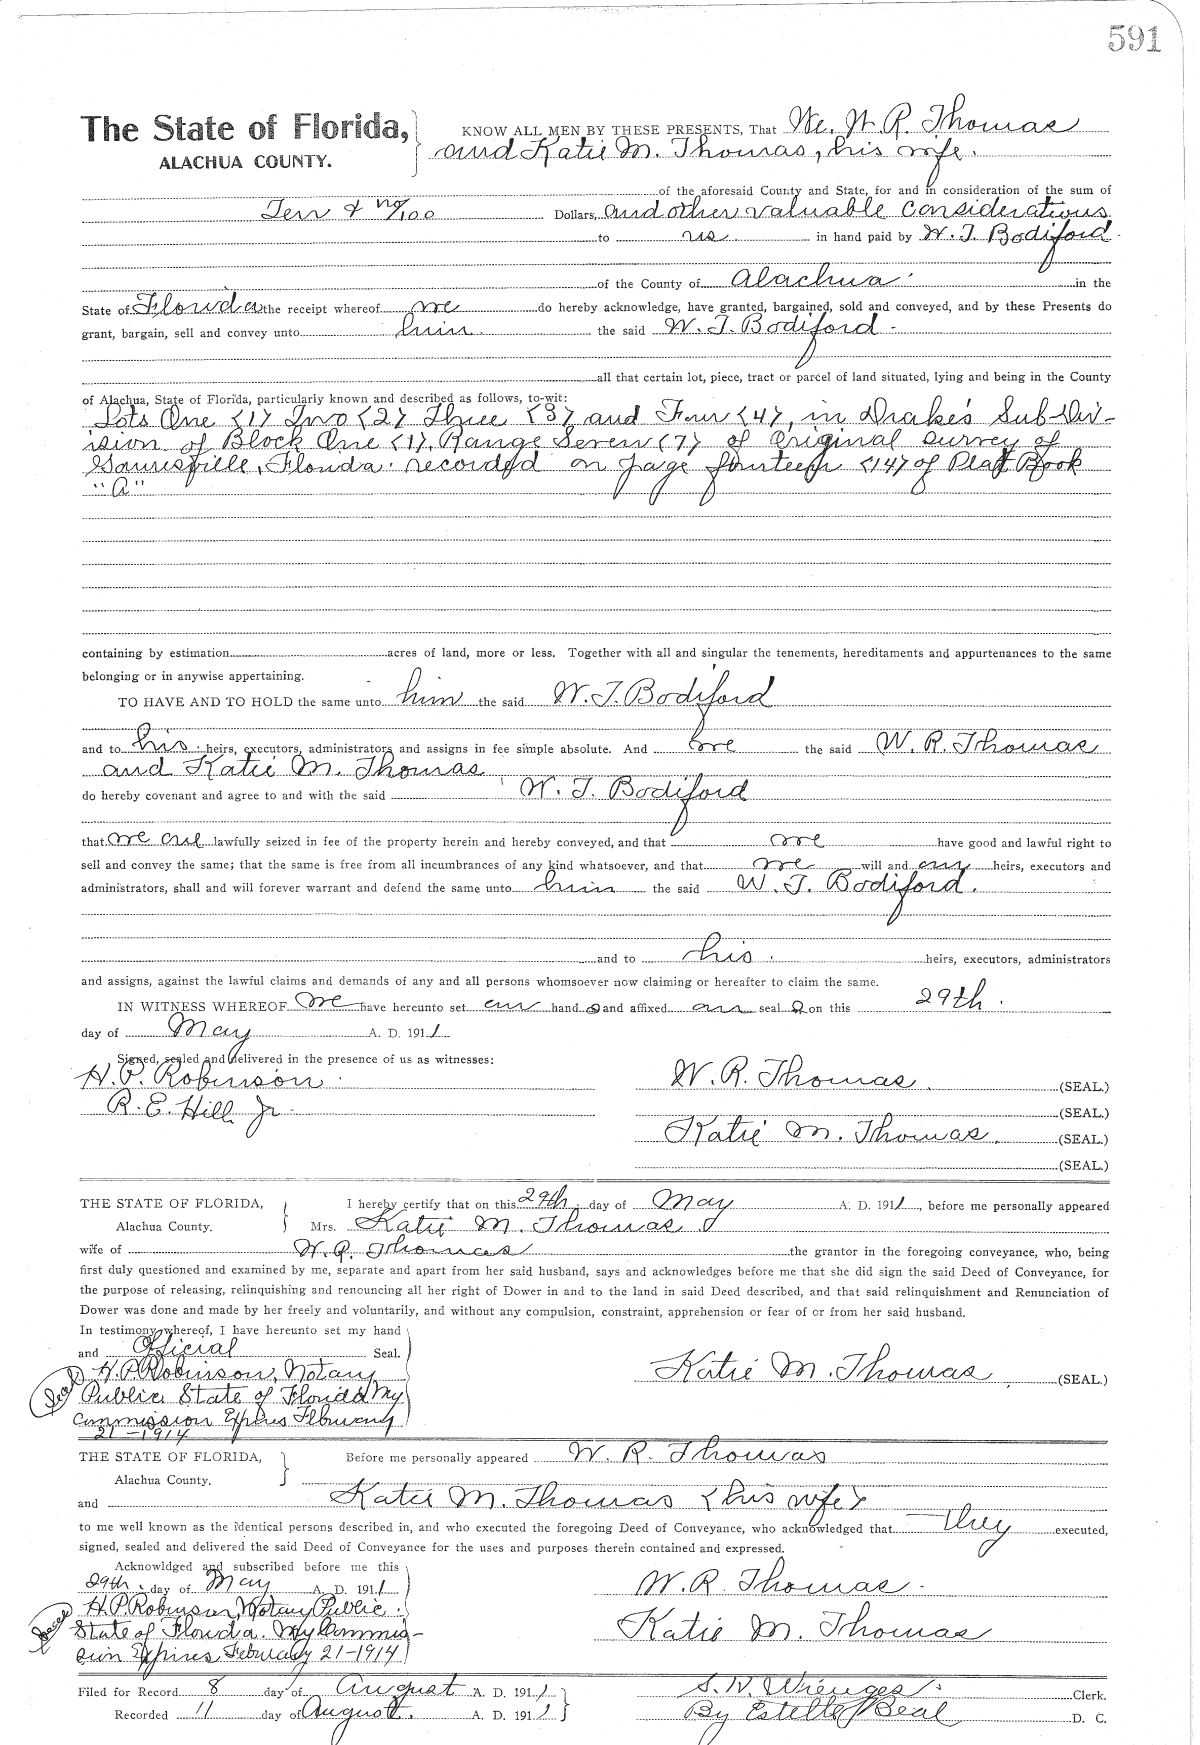 591
The State of Florida, KNOW ALL MEN BY THESE PRESENTS, That We, W. R. Thomas
ALACHUA COUNTY. and Katie M. Thomas, his wife.
of the aforesaid County and State, for and in consideration of the sum of
Ten & no/100 Dollars, and other valuable considerations
to us in hand paid by W. T. Bodiford
of the County of Alachua in the
State of Florida the receipt whereof we do hereby acknowledge, have granted, bargained, sold and conveyed, and by these Presents do
grant, bargain, sell and convey unto him the said W. T. Bodiford
all that certain lot, piece, tract or parcel of land situated, lying and being in the County
of Alachua, State of Florida, particularly known and described as follows, to-wit:
Lots One (1) Two (2) Three (3) and Four (4), in Drake's Sub-Div-
ision of Block One (1), Range Seven (7) of original survey of
Gainesville, Florida. recorded on page fourteen (14) of Plat Book
"A"
containing by estimation acres of land, more or less. Together with all and singular the tenements, hereditaments and appurtenances to the same
belonging or in anywise appertaining.
TO HAVE AND TO HOLD the same unto him the said W. T. Bodiford
and to his heirs, executors, administrators and assigns in fee simple absolute. And we the said W. R. Thomas
and Katie M. Thomas
do hereby covenant and agree to and with the said W. T. Bodiford
that we are lawfully seized in fee of the property herein and hereby conveyed, and that we have good and lawful right to
sell and convey the same; that the same is free from all incumbrances of any kind whatsoever, and that we will and our heirs, executors and
administrators, shall and will forever warrant and defend the same unto him the said W. T. Bodiford.
and to his heirs, executors, administrators
and assigns, against the lawful claims and demands of any and all persons whomsoever now claiming or hereafter to claim the same.
IN WITNESS WHEREOF we have hereunto set our hand s and affixed our seal s on this 29th.
day of May A. D. 1911
Signed, sealed and delivered in the presence of us as witnesses:
H. P. Robinson W. R. Thomas (SEAL.)
R. E. Hill Jr. (SEAL.)
Katie M. Thomas. (SEAL.)
(SEAL.)
THE STATE OF FLORIDA, I hereby certify that on this 29th day of May A. D. 1911, before me personally appeared
Alachua County. Mrs. Katie M. Thomas
wife of W. R. Thomas the grantor in the foregoing conveyance, who, being
first duly questioned and examined by me, separate and apart from her said husband, says and acknowledges before me that she did sign the said Deed of Conveyance, for
the purpose of releasing, relinquishing and renouncing all her right of Dower in and to the land in said Deed described, and that said relinquishment and Renunciation of
Dower was done and made by her freely and voluntarily, and without any compulsion, constraint, apprehension or fear of or from her said husband.
In testimony whereof, I have hereunto set my hand
and Official Seal.
H. P. Robinson, Notary Katie M. Thomas (SEAL.)
Seal Public State of Florida My
Commission Expires February
21-1914
THE STATE OF FLORIDA, Before me personally appeared W. R. Thomas
Alachua County.
and Katie M. Thomas (his wife)
to me well known as the identical persons described in, and who executed the foregoing Deed of Conveyance, who acknowledged that they executed,
signed, sealed and delivered the said Deed of Conveyance for the uses and purposes therein contained and expressed.
Acknowldged and subscribed before me this
29th. day of May A. D. 1911 W. R. Thomas
H. P. Robinson, Notary Public
State of Florida. My Commis- Katie M. Thomas
sion Expires February 21-1914
Filed for Record 8 day of August A. D. 1911 S. H. Wienges Clerk.
Recorded 11 day of August. A. D. 1911 By Estelle Beal D. C.